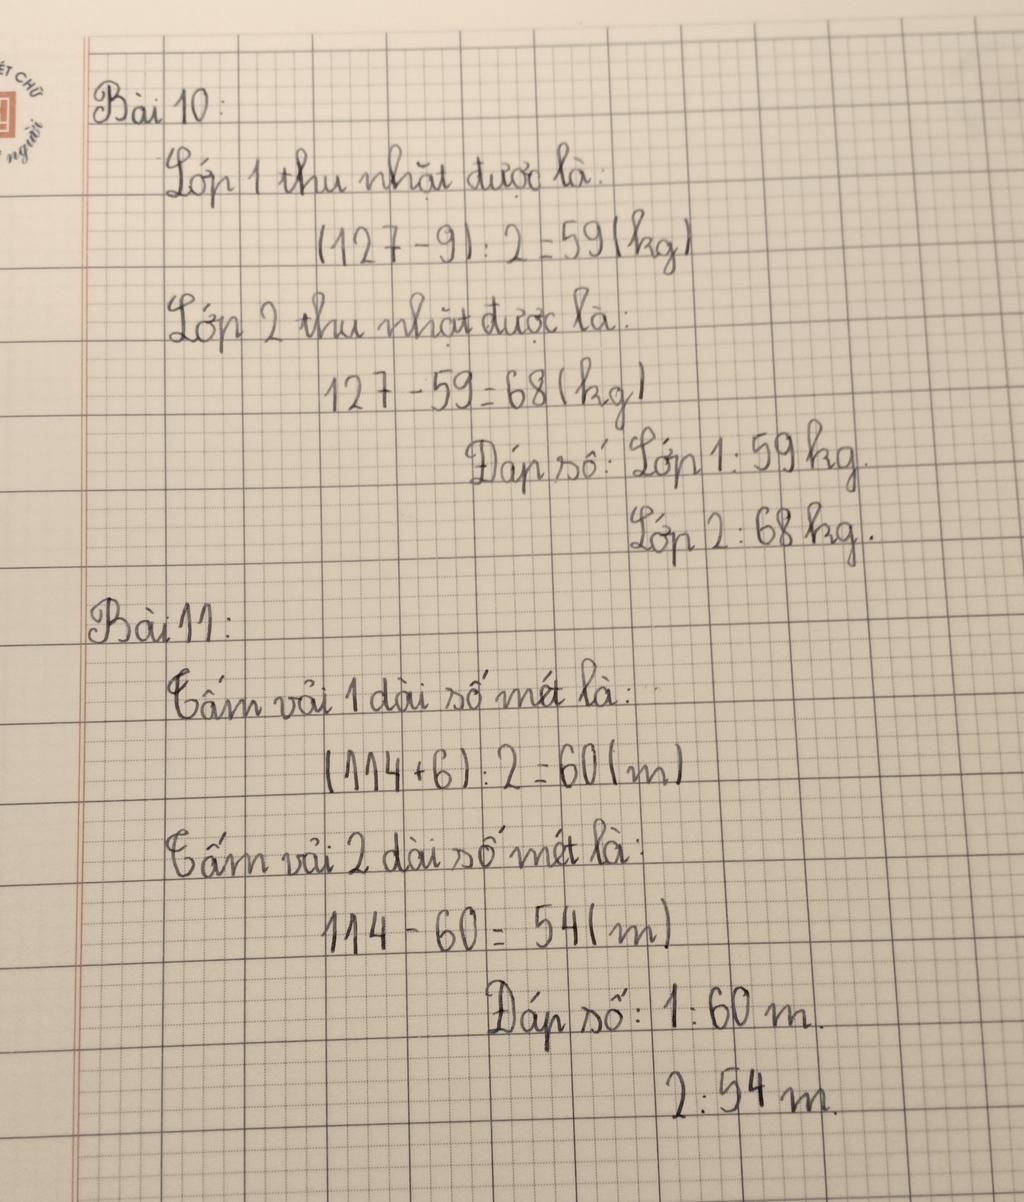 ẾT CHỮ
người
Bài 10:
Lớp 1 thu nhặt được là:
(127 - 9) : 2 = 59 (kg)
Lớp 2 thu nhặt được là:
127 - 59 = 68 (kg)
Đáp số: Lớp 1: 59 kg.
Lớp 2: 68 kg.
Bài 11:
Tấm vải 1 dài số mét là:
(114 + 6) : 2 = 60 (m)
Tấm vải 2 dài số mét là:
114 - 60 = 54 (m)
Đáp số: 1: 60 m.
2: 54 m.